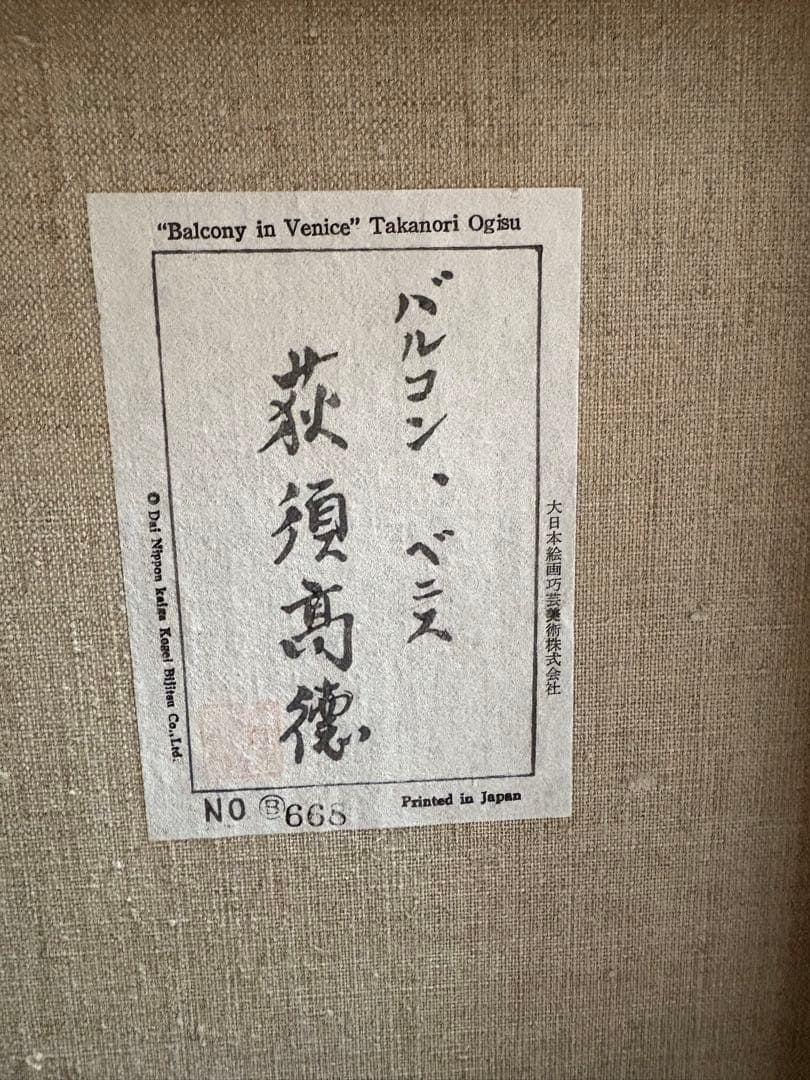 “Balcony in Venice” Takanori Ogisu
バルコン、ベニス
荻須高徳
大日本絵画巧芸美術株式会社
© Dai Nippon kaiga Kogei Bijitsu Co.,Ltd.
NO Ⓑ668
Printed in Japan